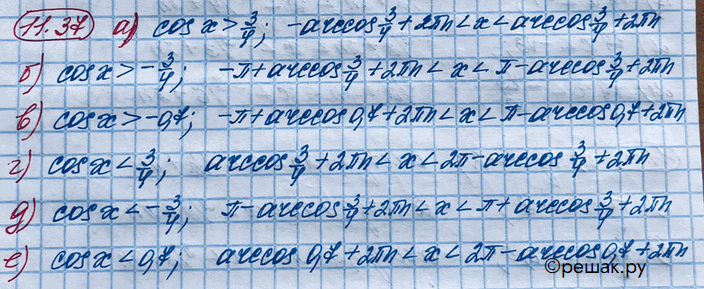 11.37 а) cos x > 3/4; -arccos 3/4 + 2πn < x < arccos 3/4 + 2πn
б) cos x > -3/4; -π + arccos 3/4 + 2πn < x < π - arccos 3/4 + 2πn
в) cos x > -0,7; -π + arccos 0,7 + 2πn < x < π - arccos 0,7 + 2πn
г) cos x < 3/4; arccos 3/4 + 2πn < x < 2π - arccos 3/4 + 2πn
д) cos x < -3/4; π - arccos 3/4 + 2πn < x < π + arccos 3/4 + 2πn
е) cos x < 0,7; arccos 0,7 + 2πn < x < 2π - arccos 0,7 + 2πn
©решак.ру